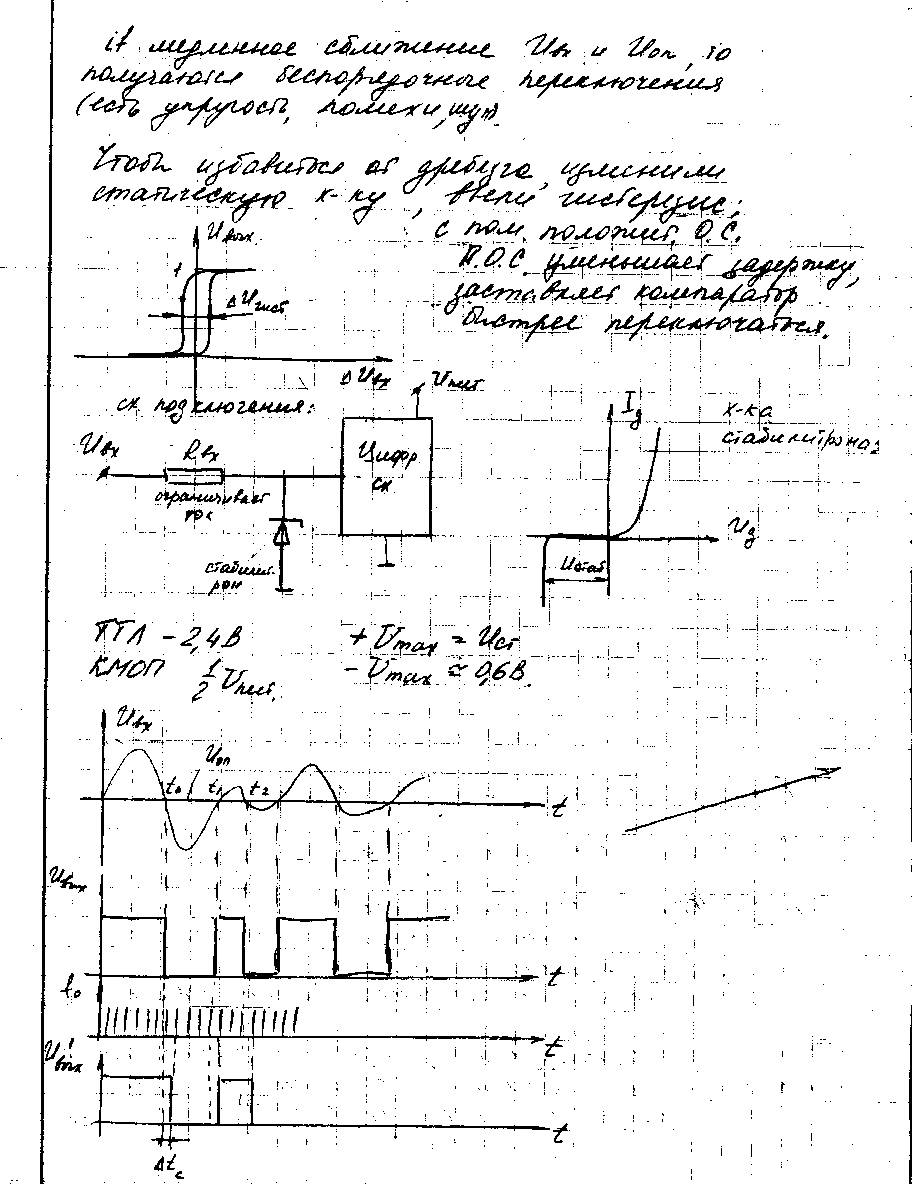 if медленное сближение Uвх и Uоп, то
получаются беспорядочные переключения
(есть упругость, помехи, шум).
Чтобы избавиться от дребезга, изменили
статическую х-ку, ввели гистерезис;
с пом. положит. О.С.
П.О.С. уменьшает задержку,
заставляет компаратор
быстрее переключаться.
Uвых
1
ΔUгист
ΔUвх
сх подключения:
Uпит
Uвх
Rвх
ограничивает
ток
Цифр
сх
стабилит-
рон
Iд
х-ка
стабилитрона:
Uд
Uстаб
ТТЛ - 2,4В
+Umax = Uст
КМОП 1/2 Uпит.
-Umax ≈ 0,6В.
Uвх
Uоп
t0 t1 t2
t
Uвых
t
f0
t
U'вых
t
Δtc